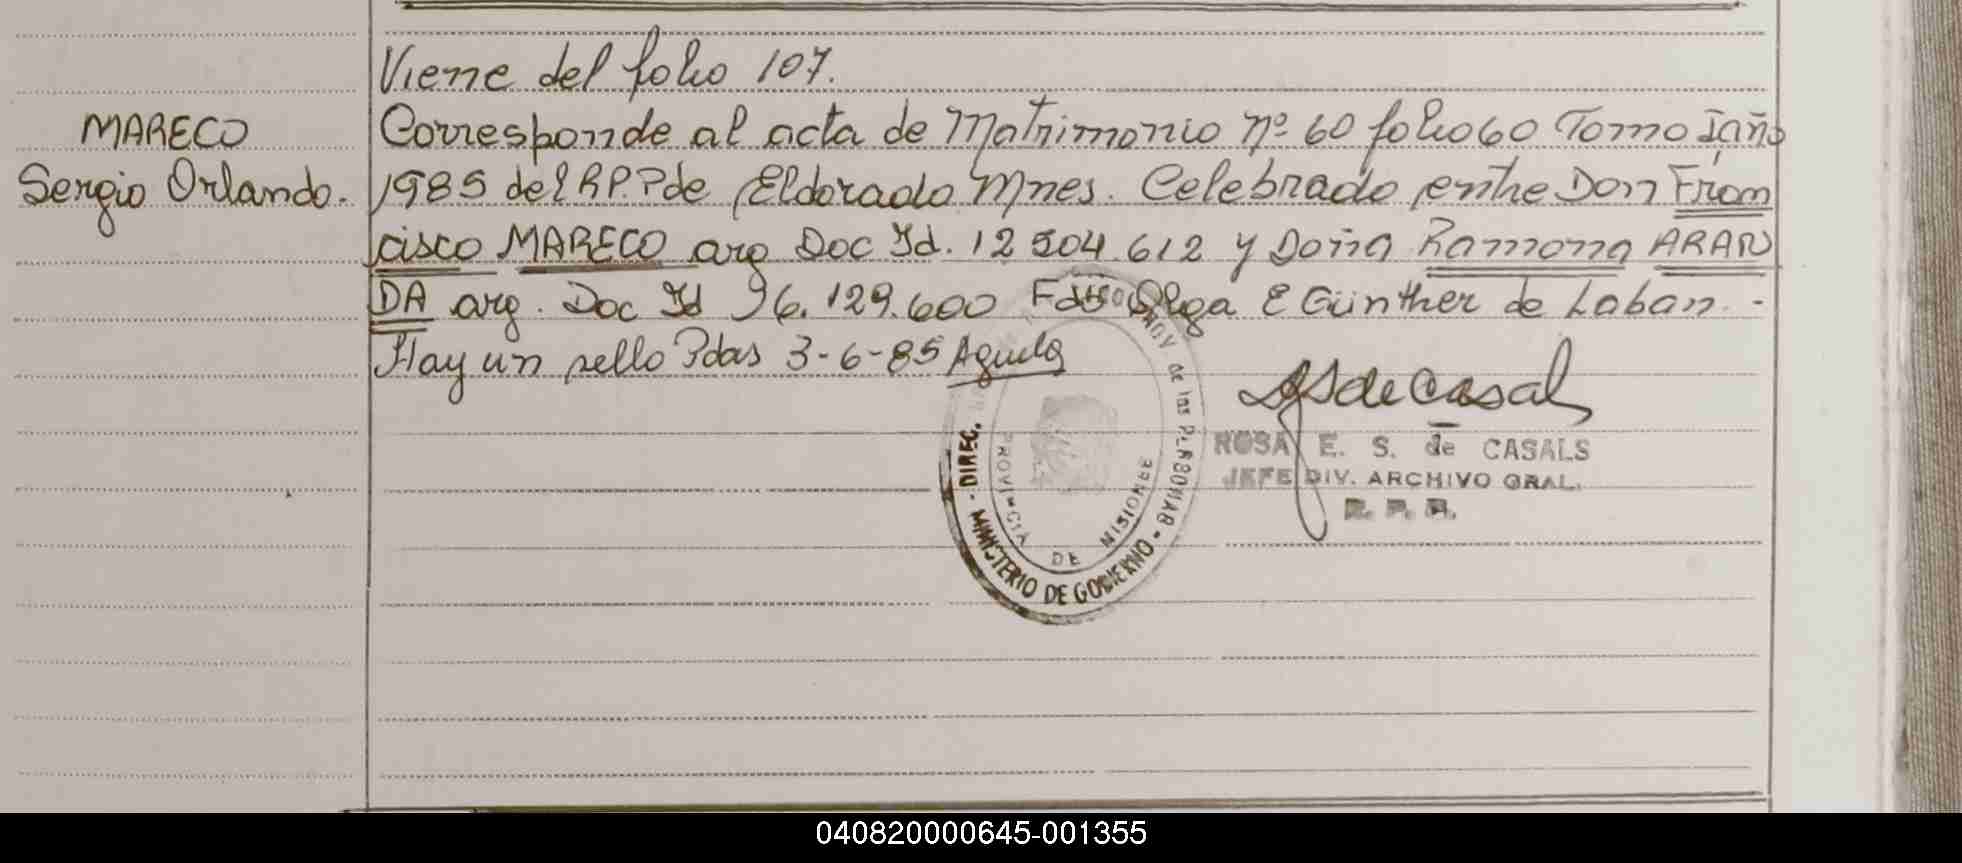 Viene del folio 107.
MARECO
Sergio Orlando.
Corresponde al acta de Matrimonio nº 60 folio 60 Tomo I año
1985 del R.P. Pde Eldorado Mnes. Celebrado entre Don Fran
cisco MARECO arg Doc Id. 12 504.612 y Doña Ramona ARAN
DA arg. Doc Id 96.129.600 Fdo Olga E Günther de Laban. -
Hay un sello Pdas 3-6-85
de Casal
ROSA E. S. de CASALS
JEFE DIV. ARCHIVO GRAL.
R. P. P.
MINISTERIO DE GOBIERNO - DIREC. de las PERSONAS -
PROVINCIA DE MISIONES
040820000645-001355